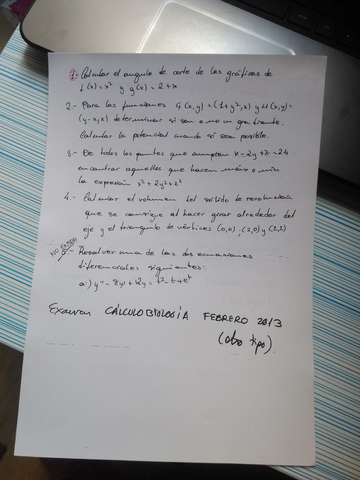 1.- Calcular el angulo de corte de las gráficas de
f(x) = x² y g(x) = 2+x
2.- Para las funciones G(x,y) = (1+y², x) y H(x,y) =
(y-x, x) determinar si son o no un gradiente.
Calcular la potencial cuando si sea posible.
3.- De todos los puntos que cumplen x-2y+z=24
encontrar aquellos que hacen máxima o mínima
la expresión x²+2y²+z²
4.- Calcular el volumen del sólido de revolución
que se consigue al hacer girar alrededor del
eje y el triangulo de vértices (0,0), (2,0) y (2,2)
NO ENTRA
5.- Resolver una de las dos ecuaciones
diferenciales siguientes:
a) y'' - 8y' + 12y = t² - t + e^t
Examen CÁLCULO BIOLOGÍA FEBRERO 2013
(otro tipo).